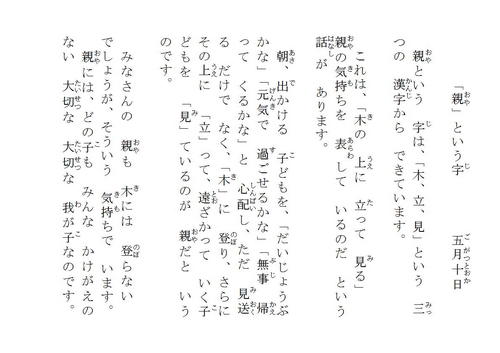 「親」という字 五月十日
親という 字は、「木、立、見」という 三
つの 漢字から できています。
これは、「木の 上に 立って 見る」
親の気持ちを 表して いるのだ という
話が あります。
朝、出かける 子どもを、「だいじょうぶ
かな」「元気で 過ごせるかな」「無事 帰
って くるかな」と 心配し、ただ 見送
る だけで なく、「木」に 登り、さらに
その上に 「立」って、遠ざかって いく子
どもを 「見」ているのが 親だと いう
のです。
みなさんの 親も 木には 登らない
でしょうが、そういう 気持ちで います。
親には、どの子も みんな かけがえの
ない 大切な 大切な 我が子なのです。